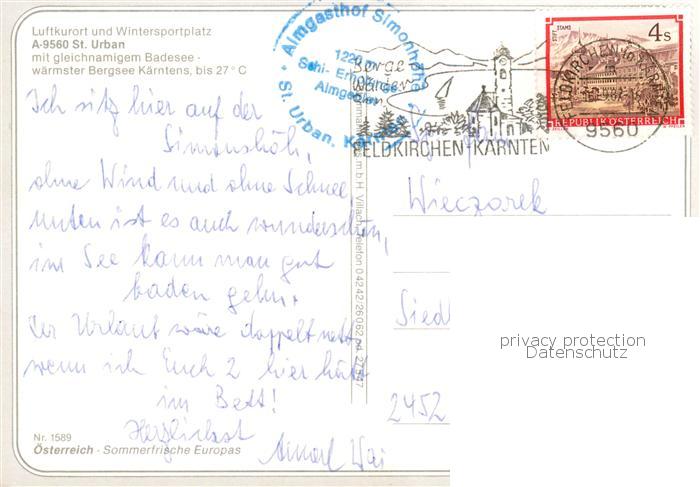 Luftkurort und Wintersportplatz
A-9560 St. Urban
mit gleichnamigem Badesee -
wärmster Bergsee Kärntens, bis 27° C
Ich sitz hier auf der
Simonshöh,
ohne Wind und ohne Schnee,
unten ist es auch wunderschön,
im See kann man gut
baden gehn.
Der Urlaub wäre doppelt nett,
wenn ich Euch 2 hier hätt
im Bett!
Herzlichst
Nr. 1589
Österreich - Sommerfrische Europas
Almgasthof Simonhöhe
1220 m
Schi-
St. Urban, Kärnten
Berge
Wälder
Seen
FELDKIRCHEN KÄRNTEN
m b H, Villach, Telefon 0 42 42/26 0 62
STIFT STAMS
4 s
REPUBLIK ÖSTERREICH
FELDKIRCHEN
9560
Wieczorek
Sied
2452
privacy protection
Datenschutz